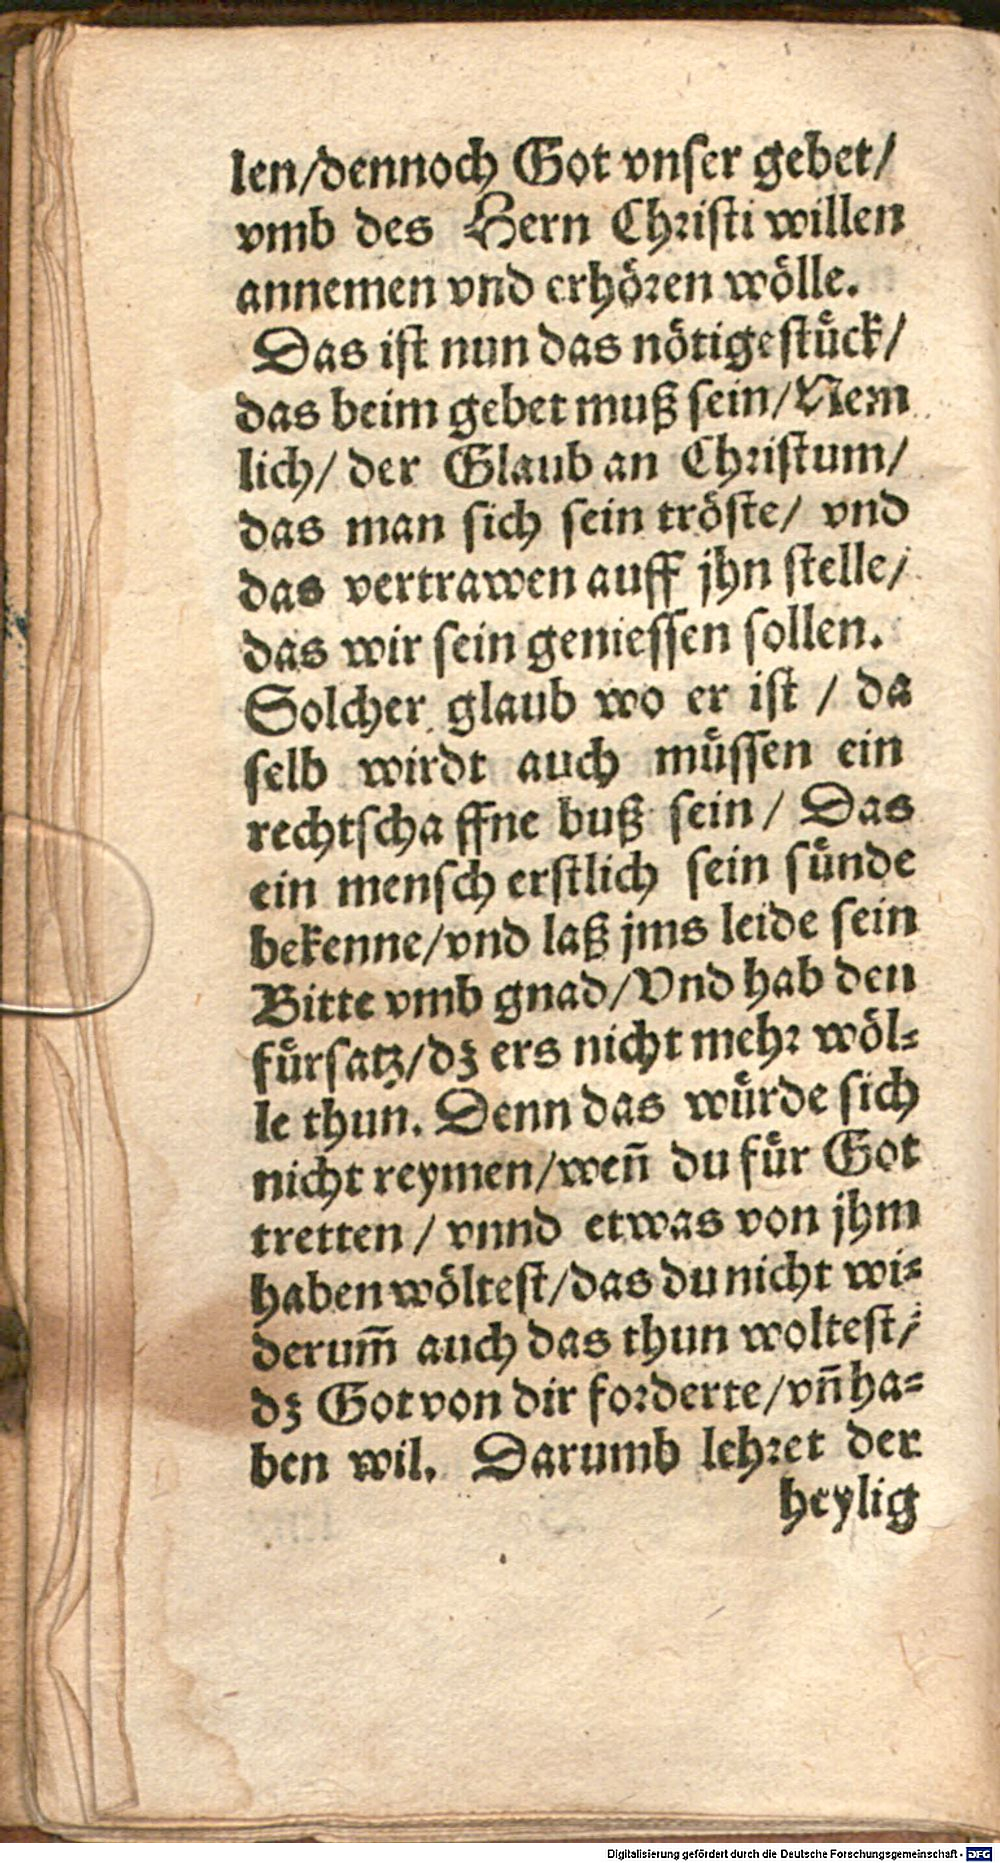 len/dennoch Got vnser gebet/
vmb des Hern Christi willen
annemen vnd erhoͤren woͤlle.
Das ist nun das noͤtige stuͤck/
das beim gebet muß sein/Nem
lich/ der Glaub an Christum/
das man sich sein troͤste/ vnd
das vertrawen auff jhn stelle/
das wir sein geniessen sollen.
Solcher glaub wo er ist / da
selb wirdt auch muͤssen ein
rechtscha ffne buß sein/ Das
ein mensch erstlich sein suͤnde
bekenne/vnd laß jms leide sein
Bitte vmb gnad/Vnd hab den
fuͤrsatz/dz ers nicht mehr woͤl⸗
le thun. Denn das wuͤrde sich
nicht reymen/weñ du fuͤr Got
tretten / vnnd etwas von jhm
haben woͤltest/das du nicht wi⸗
derum̃ auch das thun woltest/
dz Got von dir forderte/vñ ha⸗
ben wil. Darumb lehret der
heylig
Digitalisierung gefördert durch die Deutsche Forschungsgemeinschaft - DFG